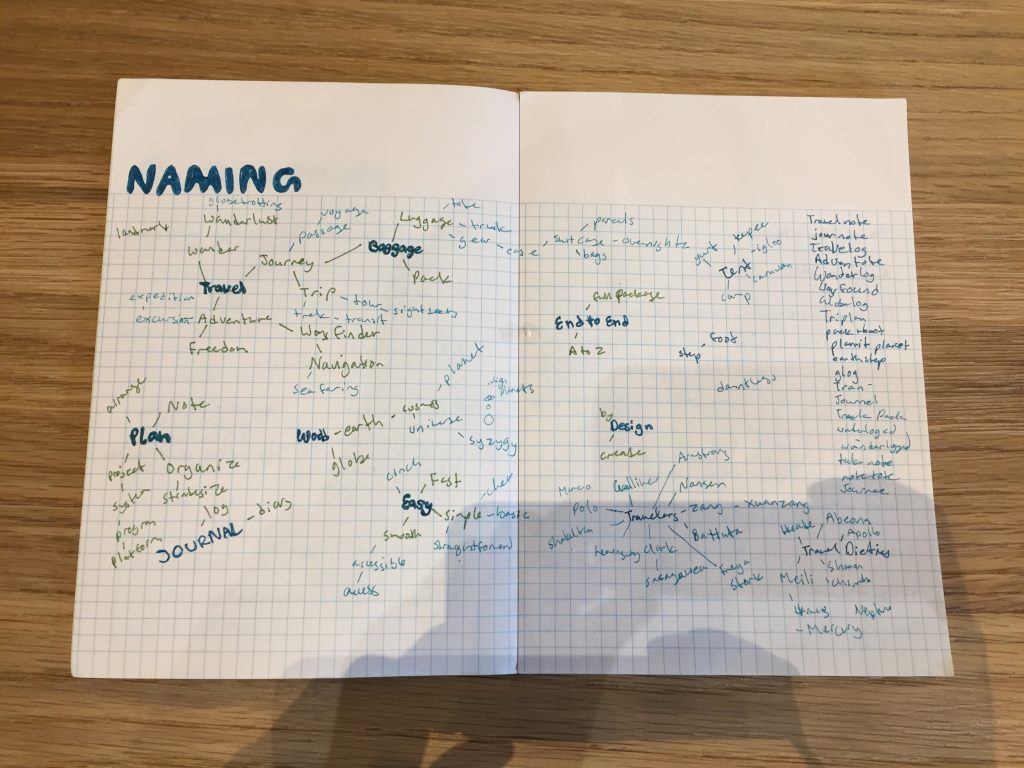 NAMING
globetrotting
landmark
Wanderlust
Wander
voyage
passage
Journey
Travel
expedition
excursion
Adventure
Freedom
Trip
tour
sightseeing
trek - transit
Way Finder
Navigation
Sea faring
Baggage
Luggage
tote
trunk
gear
case
Pack
arrange
Note
Plan
project
system
program
platform
Organize
strategize
log
JOURNAL - diary
earth
globe
cosmos
universe
planet
planets
syzygy
cinch
Fast
Easy
simple - basic
straightforward
smooth
accessible
access
parcels
suitcase - overnight
bags
yurt
igloo
Tent
caravan
camp
full package
End to End
A to Z
foot
step
dauntless
by
Design
create
Armstrong
Gulliver
Nansen
Marco
Polo
Travelers - zang - xuanzang
Battuta
hemingway
Clark
Freya
Stark
Hecate
Abeona
Apollo
Travel Dieties
Meili
Hermes
Neptune
- Mercury
Travelnote
journote
Travelog
Adventote
Wanderlog
Wayfound
Globalog
Triplan
pack about
plannit planet
earthstep
glog
Tran-
Journel
Track Pack
wanderlogged
take note
note tote
Journee